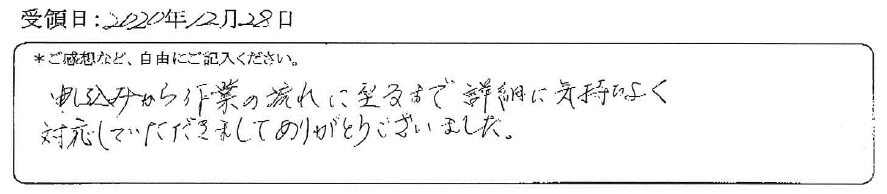 受領日：2020年12月28日
＊ご感想など、自由にご記入ください。
申込みから作業の流れに至るまで詳細に気持ちよく
対応していただきましてありがとうございました。